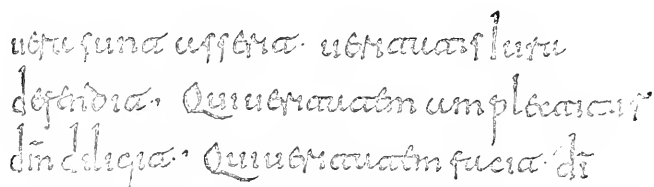 uera sunt asserit. ueritatis iura
defendit. Qui ueritatem amplectitur
dm̄ diligit. Qui ueritatem facit. dī